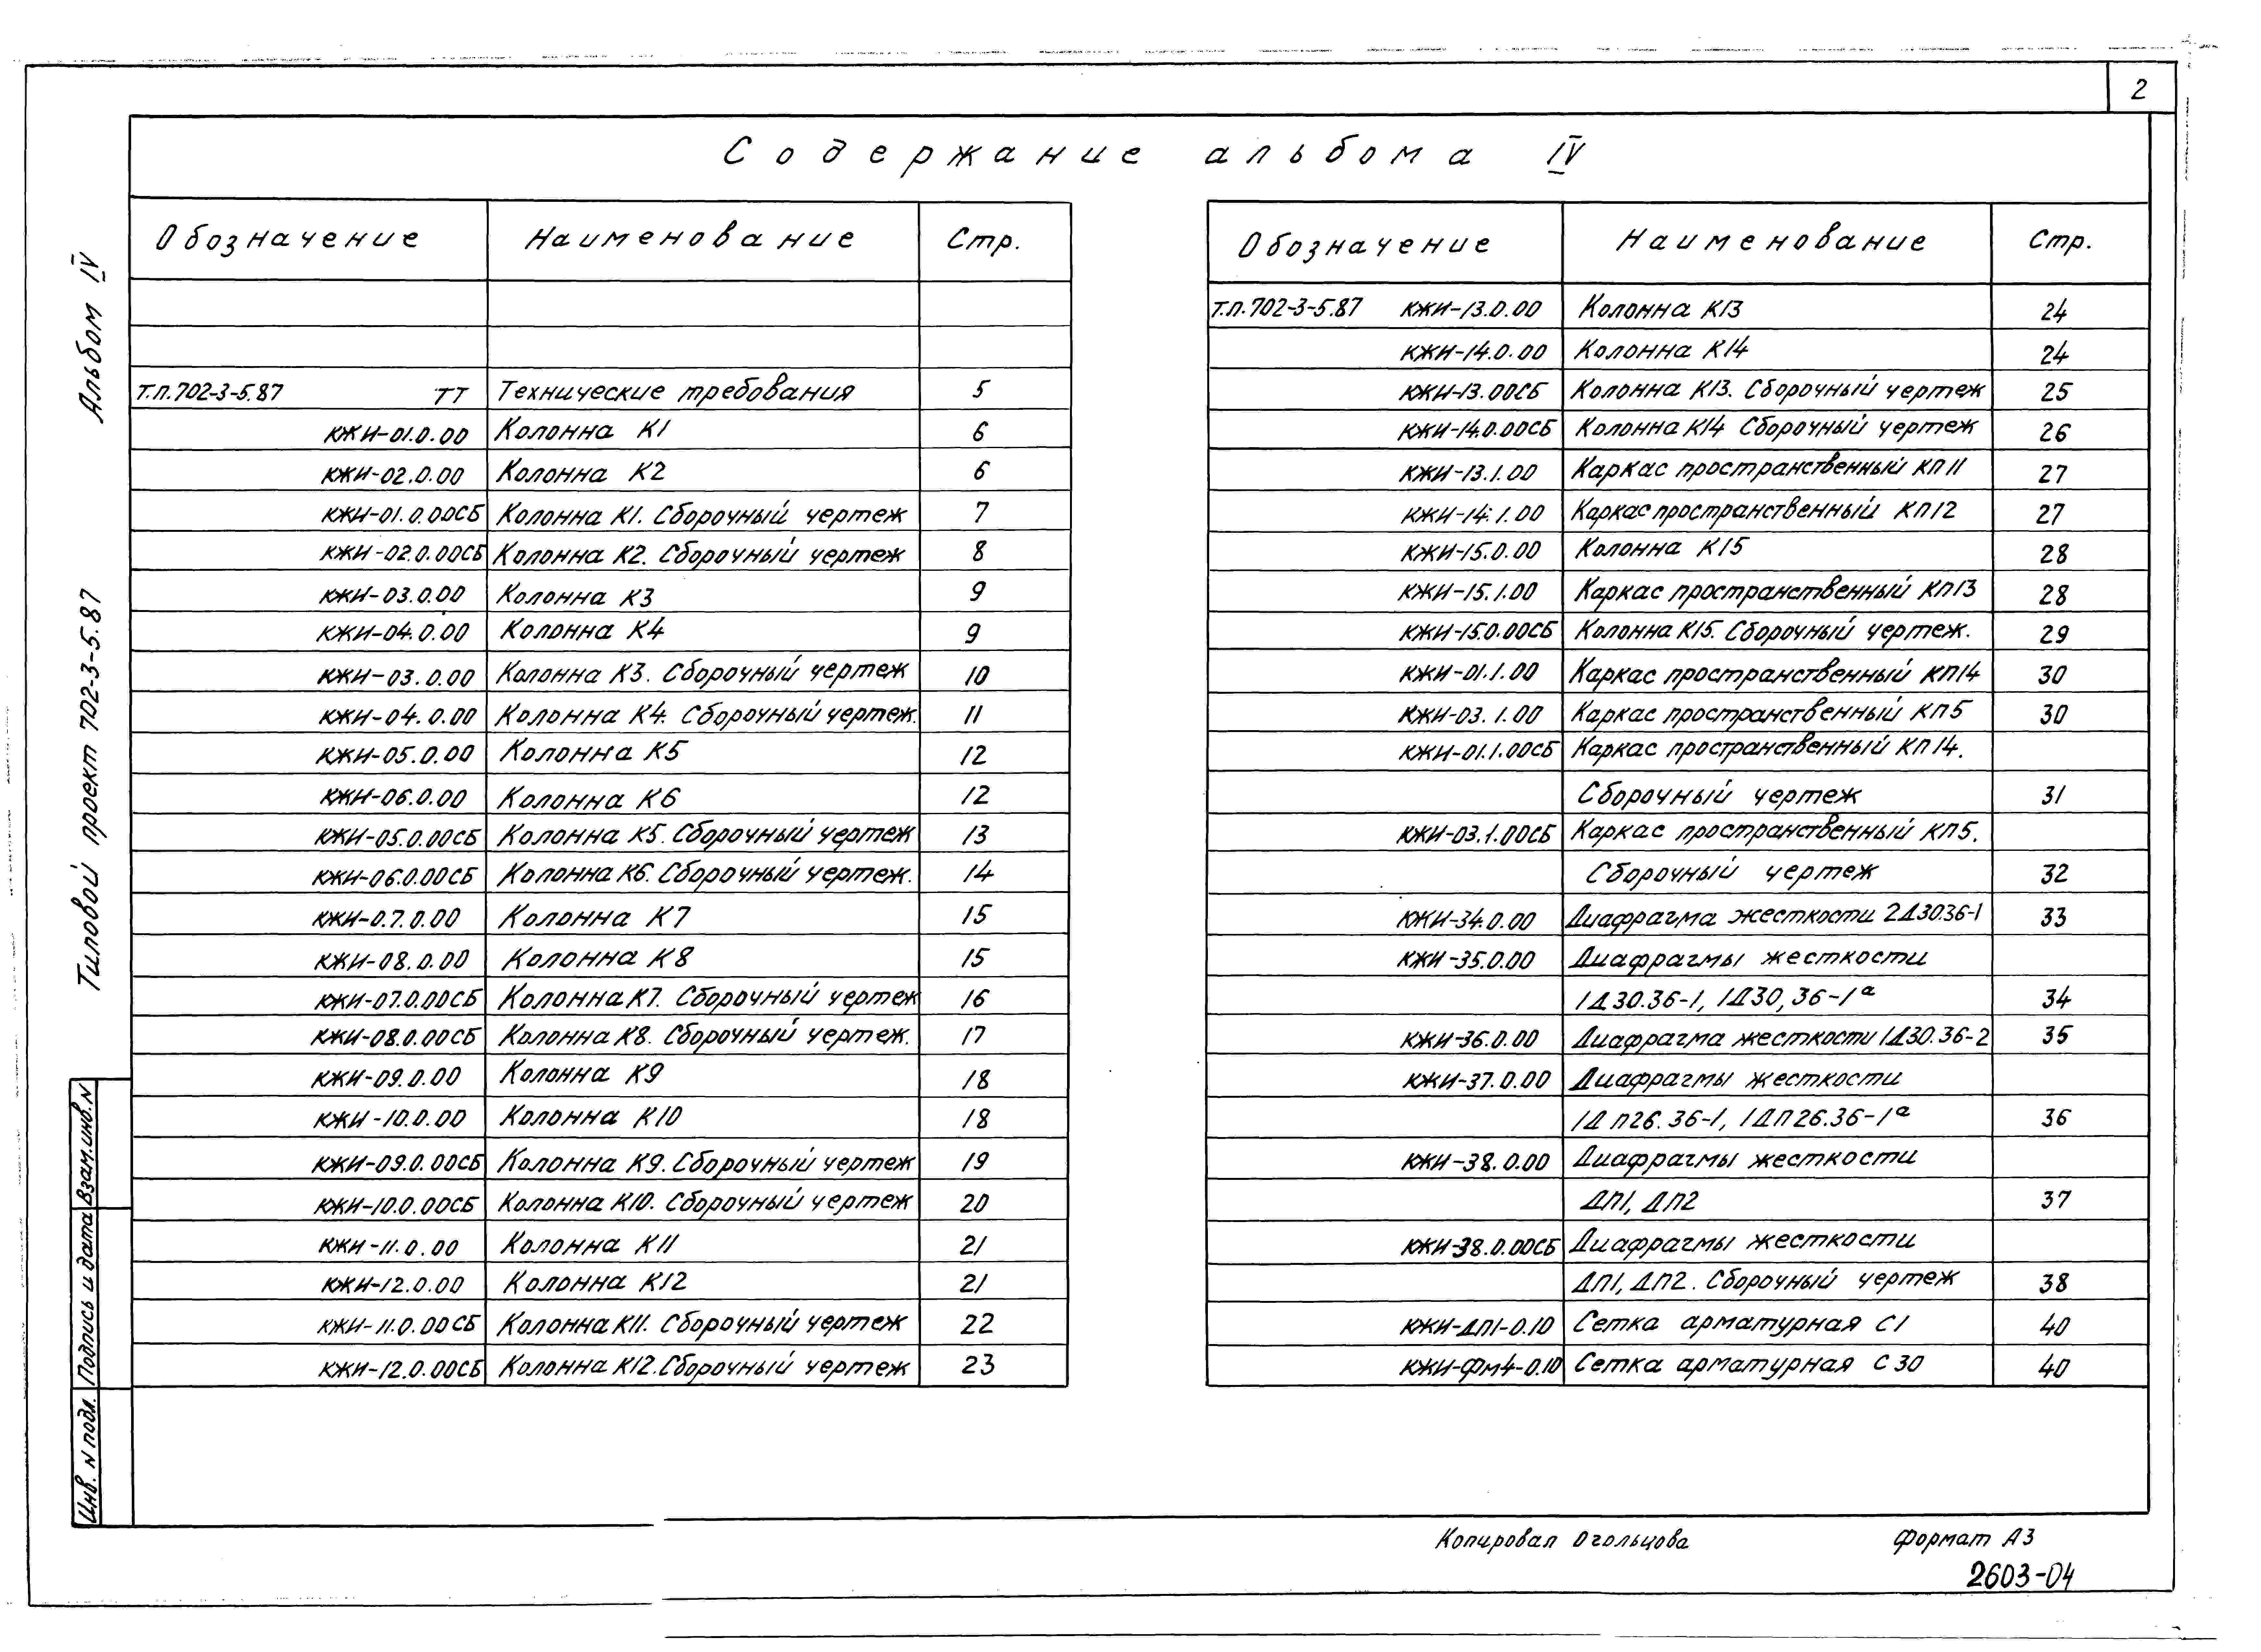 2
Содержание альбома IV
Обозначение Наименование Стр.
Т.П.702-3-5.87 ТТ Технические требования 5
КЖИ-01.0.00 Колонна К1 6
КЖИ-02.0.00 Колонна К2 6
КЖИ-01.0.00СБ Колонна К1. Сборочный чертеж 7
КЖИ-02.0.00СБ Колонна К2. Сборочный чертеж 8
КЖИ-03.0.00 Колонна К3 9
КЖИ-04.0.00 Колонна К4 9
КЖИ-03.0.00 Колонна К3. Сборочный чертеж 10
КЖИ-04.0.00 Колонна К4. Сборочный чертеж. 11
КЖИ-05.0.00 Колонна К5 12
КЖИ-06.0.00 Колонна К6 12
КЖИ-05.0.00СБ Колонна К5. Сборочный чертеж 13
КЖИ-06.0.00СБ Колонна К6. Сборочный чертеж. 14
КЖИ-0.7.0.00 Колонна К7 15
КЖИ-08.0.00 Колонна К8 15
КЖИ-07.0.00СБ Колонна К7. Сборочный чертеж 16
КЖИ-08.0.00СБ Колонна К8. Сборочный чертеж. 17
КЖИ-09.0.00 Колонна К9 18
КЖИ-10.0.00 Колонна К10 18
КЖИ-09.0.00СБ Колонна К9. Сборочный чертеж 19
КЖИ-10.0.00СБ Колонна К10. Сборочный чертеж 20
КЖИ-11.0.00 Колонна К11 21
КЖИ-12.0.00 Колонна К12 21
КЖИ-11.0.00СБ Колонна К11. Сборочный чертеж 22
КЖИ-12.0.00СБ Колонна К12. Сборочный чертеж 23
Обозначение Наименование Стр.
Т.П.702-3-5.87 КЖИ-13.0.00 Колонна К13 24
КЖИ-14.0.00 Колонна К14 24
КЖИ-13.00СБ Колонна К13. Сборочный чертеж 25
КЖИ-14.0.00СБ Колонна К14 Сборочный чертеж 26
КЖИ-13.1.00 Каркас пространственный КП11 27
КЖИ-14.1.00 Каркас пространственный КП12 27
КЖИ-15.0.00 Колонна К15 28
КЖИ-15.1.00 Каркас пространственный КП13 28
КЖИ-15.0.00СБ Колонна К15. Сборочный чертеж. 29
КЖИ-01.1.00 Каркас пространственный КП14 30
КЖИ-03.1.00 Каркас пространственный КП5 30
КЖИ-01.1.00СБ Каркас пространственный КП14.
Сборочный чертеж 31
КЖИ-03.1.00СБ Каркас пространственный КП5.
Сборочный чертеж 32
КЖИ-34.0.00 Диафрагма жесткости 2Д30.36-1 33
КЖИ-35.0.00 Диафрагмы жесткости
1Д30.36-1, 1Д30,36-1ᵃ 34
КЖИ-36.0.00 Диафрагма жесткости 1Д30.36-2 35
КЖИ-37.0.00 Диафрагмы жесткости
1ДП26.36-1, 1ДП26.36-1ᵃ 36
КЖИ-38.0.00 Диафрагмы жесткости
ДП1, ДП2 37
КЖИ-38.0.00СБ Диафрагмы жесткости
ДП1, ДП2. Сборочный чертеж 38
КЖИ-ДП1-0.10 Сетка арматурная С1 40
КЖИ-ФМ4-0.10 Сетка арматурная С30 40
Типовой проект 702-3-5.87 Альбом IV
Инв. N подл. Подпись и дата Взам.инв.N
Копировал Огольцова Формат А3
2603-04